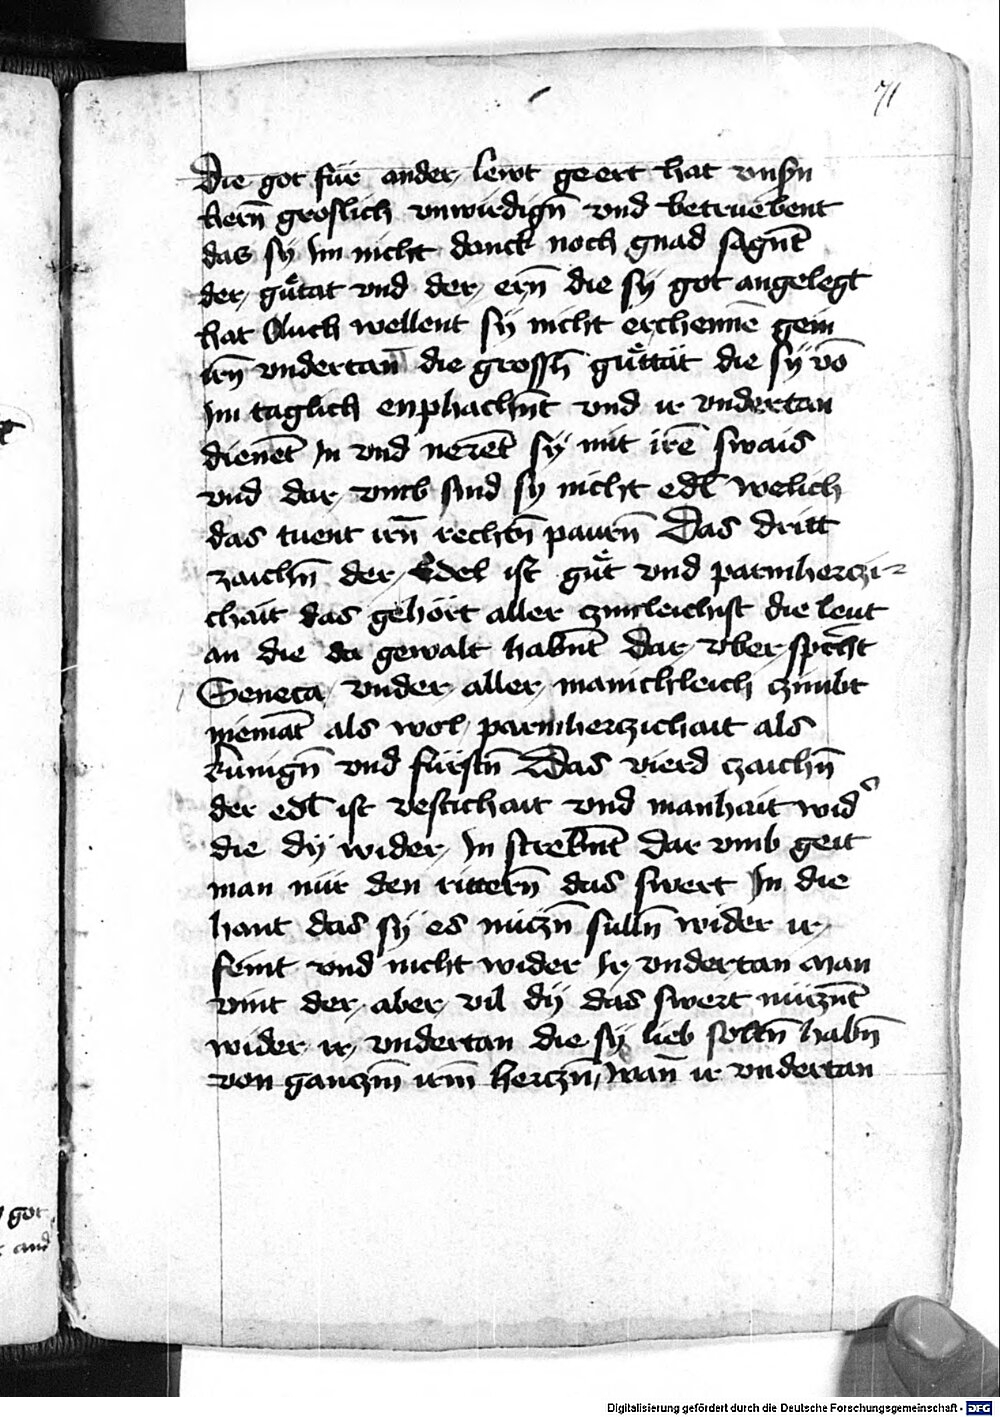 71
Die got für ander lewt geert hat vnsn
hern̄ groslich vnwirdign̄ vnd betruebent
das sy Im nicht danck noch gnad sagn̄t
der gůtat vnd der ern̄ die sy got angelegt
hat Auch wellent sy nicht erchennē gein
irn̄ vndertan̄ die grossn̄ gůttät die sy vō
Im taglich enphachn̄t vnd ir vndertan
dienēt In vnd nerēt sy mit irē swais
vnd dar vmb sind sy nicht edl̄ welich
das tuent irn̄ rechtn̄ paurn̄ Das dritt
zaichn̄ der Edel ist gůt vnd parmherczi-
chait das gehört aller czimleichist die leut
an die da gewalt habn̄t Dar vber sprcht
Seneca vnder aller manichleich czimbt
niemāt als wol parmherczichait als
kunign̄ vnd fürstn̄ Das vierd czaichn̄
der edl̄ ist vestichait vnd manhait wid'
die dy wider In strebn̄t Dar vmb geit
man nür den rittern̄ das swert In die
hant das sy es nüczn̄ sulln̄ wider ir
feint vnd nicht wider Ir vndertan Man
vint der aber vil dy das swert nüczn̄t
wider ir vndertan die sy lieb soltn̄ habn̄
von ganczm̄ irm̄ herczn̄ wan̄ ir vndertan
got
and
Digitalisierung gefördert durch die Deutsche Forschungsgemeinschaft - DFG